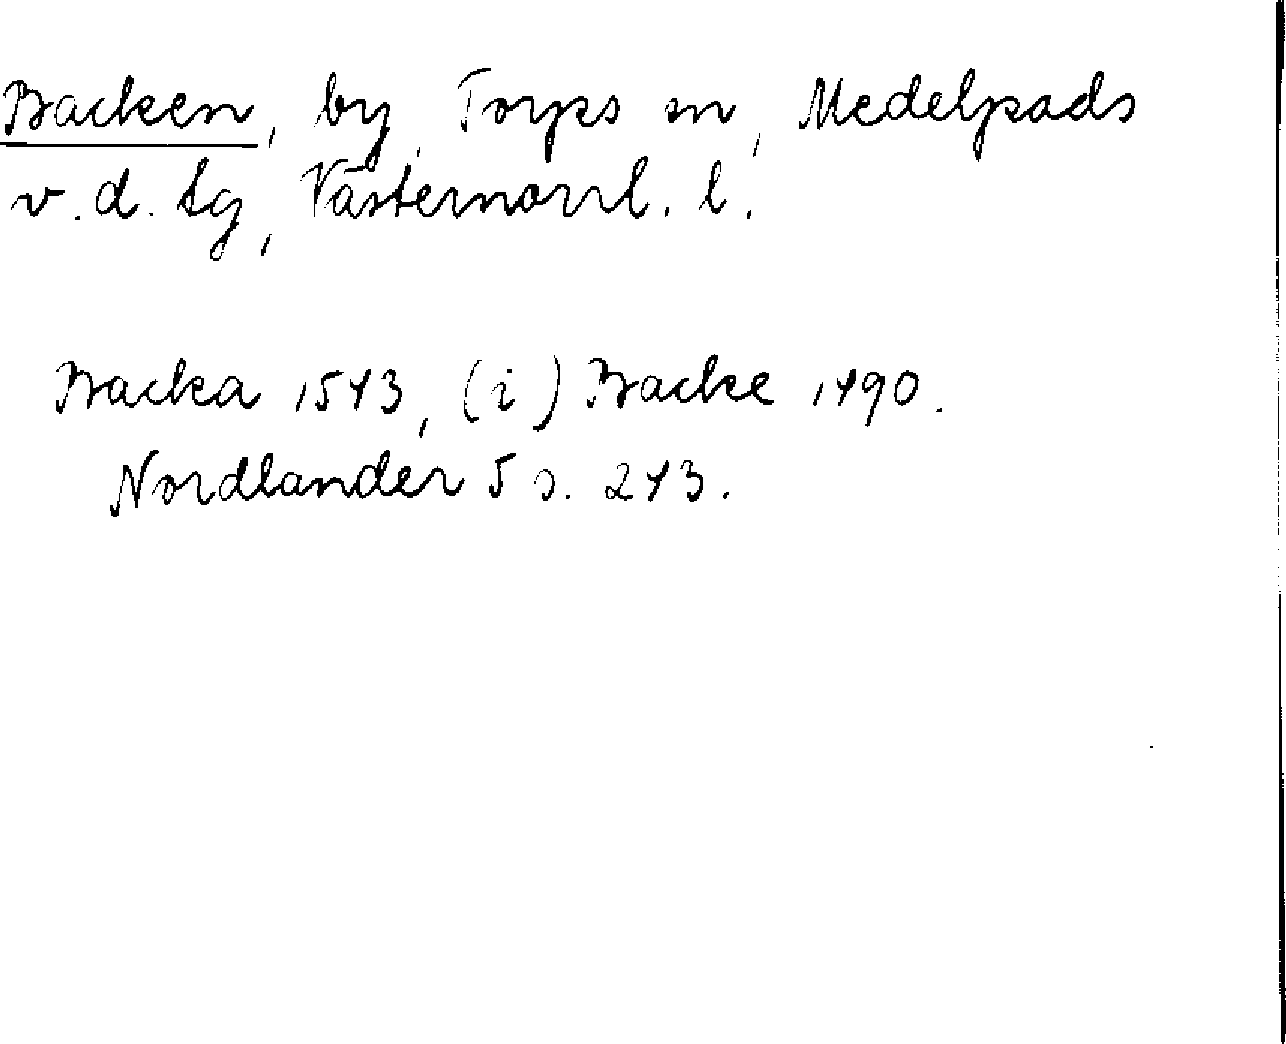 Backen, by, Torps sn, Medelpads
v. d. tg, Västernorrl. l.
Backa 1543, (i) Backe 1490.
Nordlander 5 s. 243.